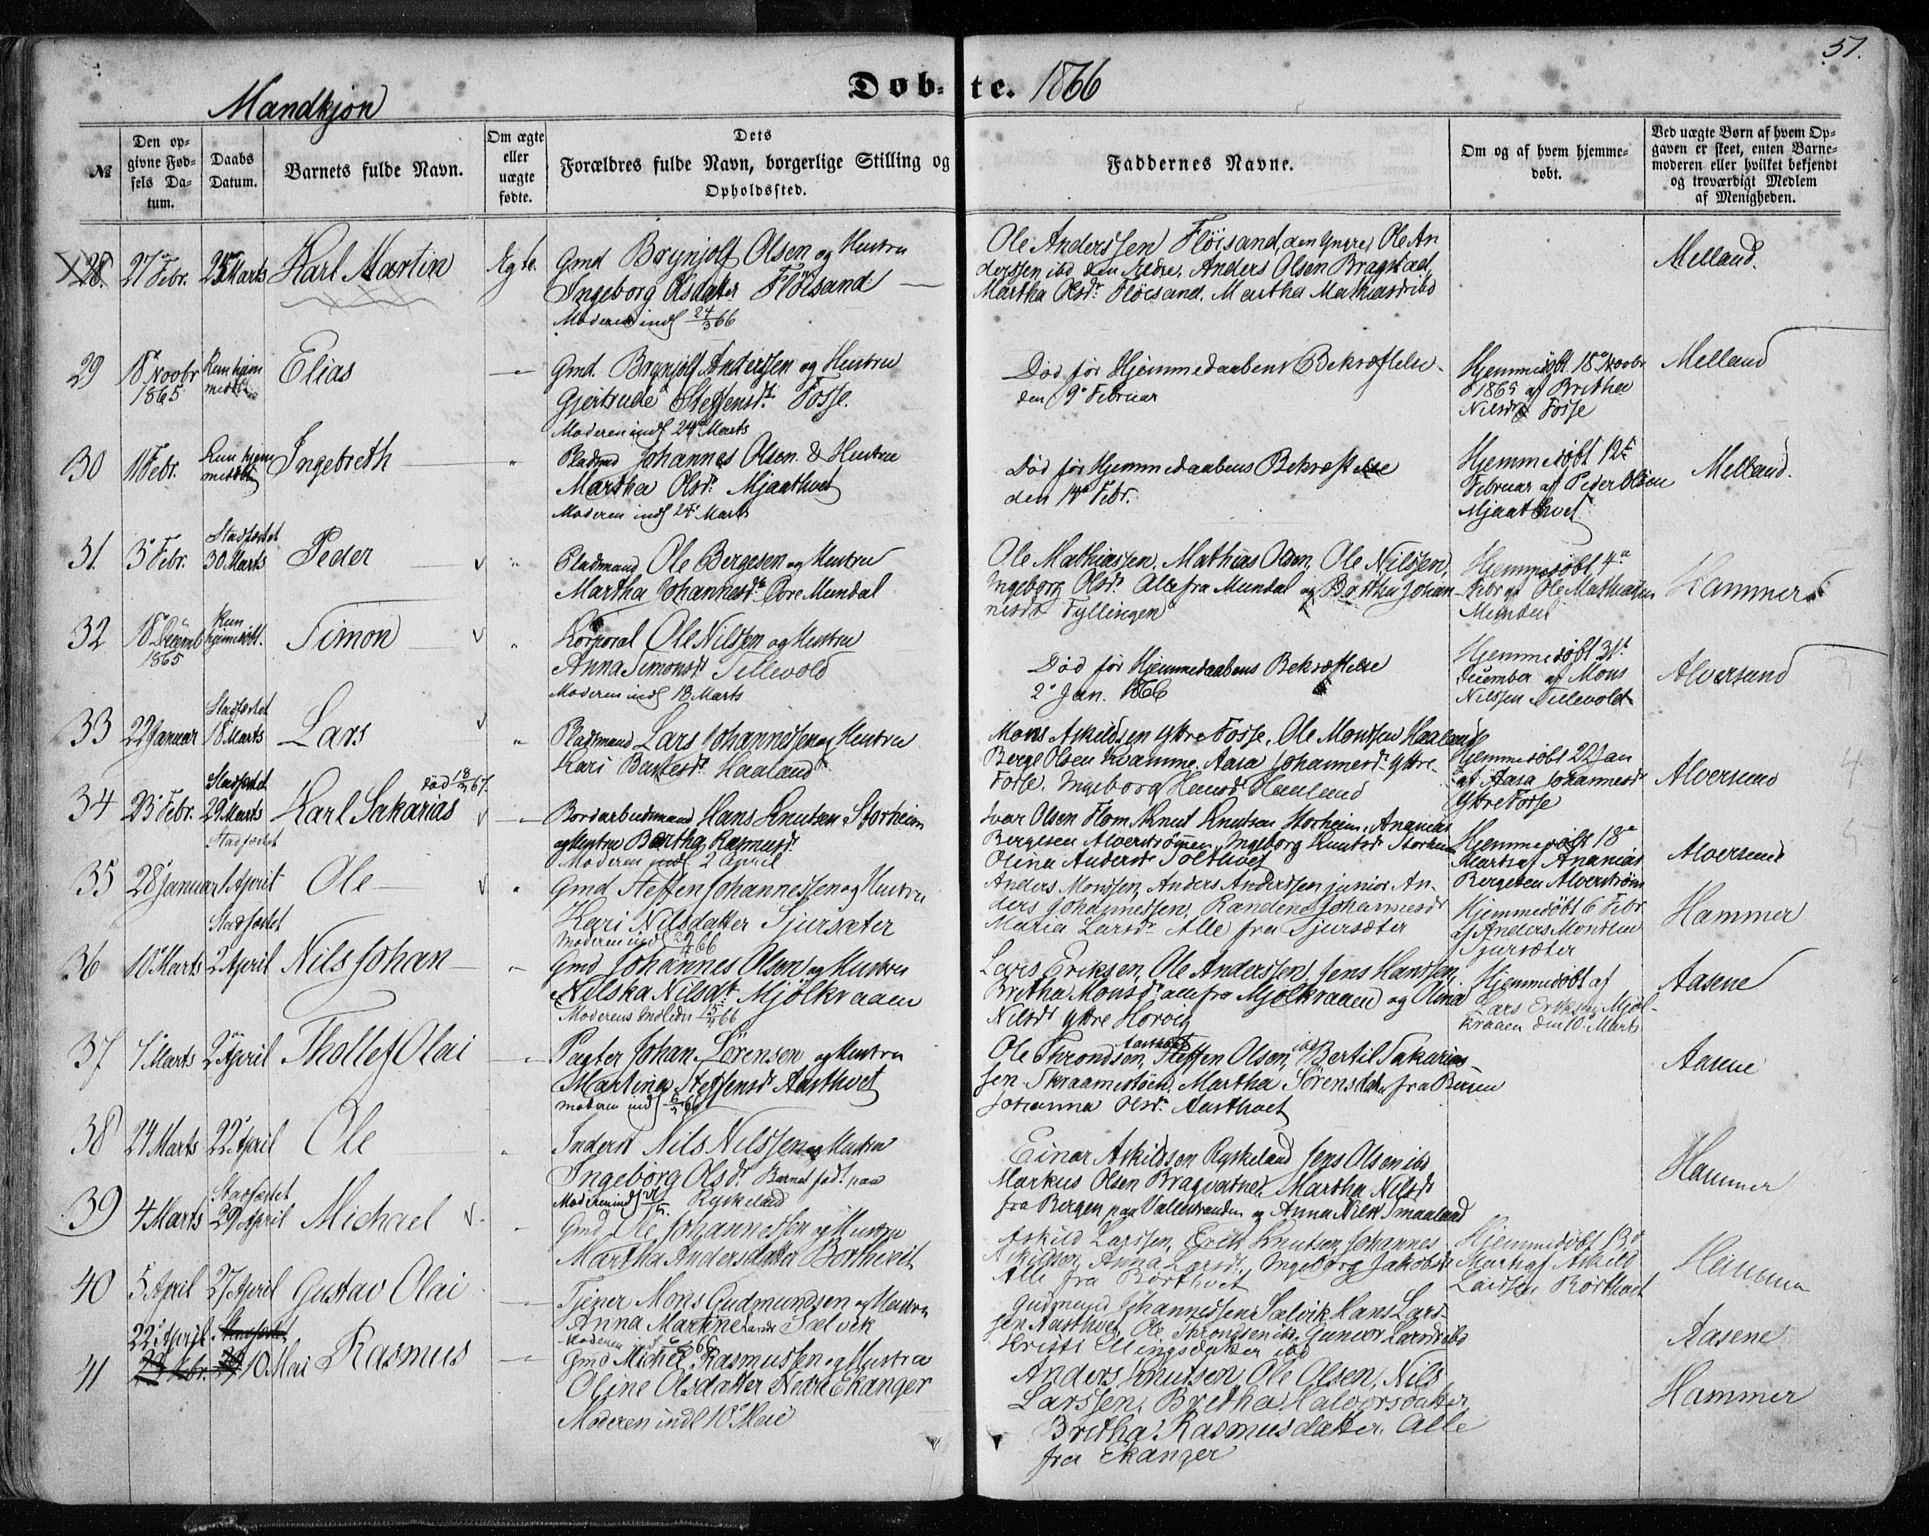 51.
Mandkjøn
Døb-te. 1866
№
Den op-
givne Fød-
sels Da-
tum.
Daabs
Datum.
Barnets fulde Navn.
Om ægte
eller
uægte
fødte.
Dets
Forældres fulde Navn, borgerlige Stilling og
Opholdssted.
Faddernes Navne.
Om og af hvem hjemme-
døbt.
Ved uægte Børn af hvem Op-
gaven er skeet, enten Barne-
moderen eller hvilket bekjendt
og troværdigt Medlem
af Menigheden.
28. 27 Febr. 25 Marts Karl Martin Ægte.
Gmd Brynjolf Olsen og Hustru
Ingeborg Olsdatter Fløisand
Moderen indl 24/3 66
Ole Anderssen Fløisand, den Yngre, Ole An
derssen ibd den Ældre, Anders Olsen Bragstad,
Martha Olsdr Fløisand, Martha Mathiasdr ibd
Melland.
29 18 Novbr 1865 Kun hjem
medøbt
Elias
Gmd. Brynjolf Anderssen og Hustru
Gjertrude Steffensdr Fosse.
Moderen indl 24 Marts
Død før Hjemmedaabens Bekræftelse
den 9 Februar
Hjemmedøbt 18 Novbr
1865 af Brithe
Nilsdr Fosse
Melland
30 11 Febr. Kun hjem
medøbt
Ingebreth
Pladsmd Johannes Olsen & Hustru
Martha Olsdr Mjaathvet
Moderen indl 24 Marts
Død før Hjemmedaabens Bekræftelse
den 14 Febr.
Hjemmedøbt 12
Februar af Peder Olsen
Mjaathvet
Melland.
31. 3 Febr. Stadfæstet
30 Marts
Peder
Pladsmand Ole Bergesen og Hustru
Martha Johannesdr Øvre Mundal
Ole Mathiassen, Mathias Olsen, Ole Nilssen,
Ingeborg Olsdr Alle fra Mundal og Brithe Johan-
nesdr Fyllingen
Hjemmedøbt 4
Febr af Ole Mathiassen
Mundal
Hammer
32 18 Decemb
1865
Kun
hjemmedøbt.
Simon
Korporal Ole Nilssen og Hustru
Anna Simonsdr Tellevold
Moderen indl 18 Marts
Død før Hjemmedaabens Bekræftelse
2 Jan. 1866
Hjemmedøbt 31
December af Mons
Nilssen Tellevold
Alversund
33 22 Januar Stadfæstet
18 Marts
Lars
Pladsmand Lars Johannessen og Hustru
Kari Haaland
Mons Askildsen Ytre Fosse, Ole Monssen Haaland
Berge Olsen Kvamme, Aasa Johannesdr Ytre-
Fosse, Ingeborg Hansdr Haaland
Hjemmedøbt 22 Jan
af Aasa Johannesdr
Ytre Fosse
Alversund
34 23 Febr. Stadfæstet
29 Marts
Karl Sakarias
død 18/2 67.
Bordarbeidsmand Hans Knutsen Storheim
og Hustru Bertha Rasmusdr
Moderen indl 2 April
Ivar Olsen Flom, Knud Knutsen Storheim, Ananias
Bergesen Alverstrømen, Ingeborg Knutsdr Storheim
Olina Andersdr Tolthvet
Hjemmedøbt 18
Marts af Ananias
Bergesen Alverstrøm
Alversund
35 28 Januar Stadfæstet
1 April
Ole
Gmd Steffen Johannessen og Hustru
Kari Nilsdatter Tjursæter
Anders Monssen, Anders Anderssen junior An-
ders Johannessen, Johannesdr
Maria Larsdr Alle fra Tjursæter
Hjemmedøbt 6 Febr
af Anders Monssen
Tjursæter
Hammer
36 10 Marts Stadfæstet
2 April
Nils Johan
Gmd Johannes Olsen og Hustru
Nilska Nilsdr Mjølkraaen
Moderens Indledn 15/4 66
Lars Eriksen, Ole Anderssen, Jens Hanssen,
Brithe Monsdr alle fra Mjølkraaen og Olina
Nilsdr Ytre Horvig
Hjemmedøbt af
Lars Eriksen Mjøl-
kraaen den 10 Marts
Aasene
37 7 Marts 2 April Thollef Olai
Pagter Johan Sørensen og Hustru
Martina Steffensdr Aasthvet
Ole Throndsen, Aasthvet Steffen Olsen, ibd Bertil Sakarias-
sen Skraamestøen, Martha Sørensdatter fra
Johanna Olsdr Aasthvet
Aasene
38 24 Marts 22 April Ole
Inderst Nils Nilssen og Hustru
Ingeborg Olsdr Barnet født paa
Rykeland
Einar Askildsen Rykeland Jens Olsen ibd
Markus Olsen Bragvatne, Martha Nilsdr
fra Bergen paa Vallestranden og Anna Nilsdr Smaaland
Hammer
39 4 Marts Stadfæstet
29 April
Michael
Gmd Ole Johannessen og Hustru
Martha Andersdatter Borthveit
Askild Larssen, Erik Knutsen, Johannes
Askildsen, Anna Larsdr, Ingeborg Jakobsdr
Alle fra Børthvet
Hjemmedøbt
Marts af Askild
Larssen Børthvet
Hammer
40 5 April 27 April Gustav Olai
Tjener Mons Gudmundsen og Hustru
Anna Martine Larsdr Sælvik
Gudmund Johannessen Sælvik Hans Lars-
sen Aasthvet Ole Throndsen ibd, Gunvor Larsdr ibd
Kristi Ellingsdatter ibd
Aasene
41 22 April 10 Mai Rasmus
Gmd Michel Rasmussen og Hustru
Oline Olsdatter Nedre Ekanger
Moderen indl 10 Mai
Anders Knutsen Ole Olsen, Nils
Larssen, Bretha Halvorsdatter
Bretha Rasmusdatter, Alle
fra Ekanger
Hammer